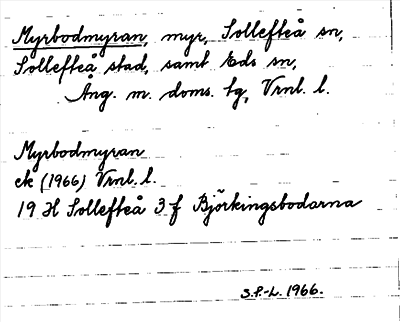 Myrbodmyran, myr, Sollefteå sn,
Sollefteå stad, samt Eds sn,
Ång. m. doms. tg, Vrnl. l.
Myrbodmyran
ek (1966) Vrnl. l.
19 H Sollefteå 3 f Björkingsbodarna
S.P.-L. 1966.